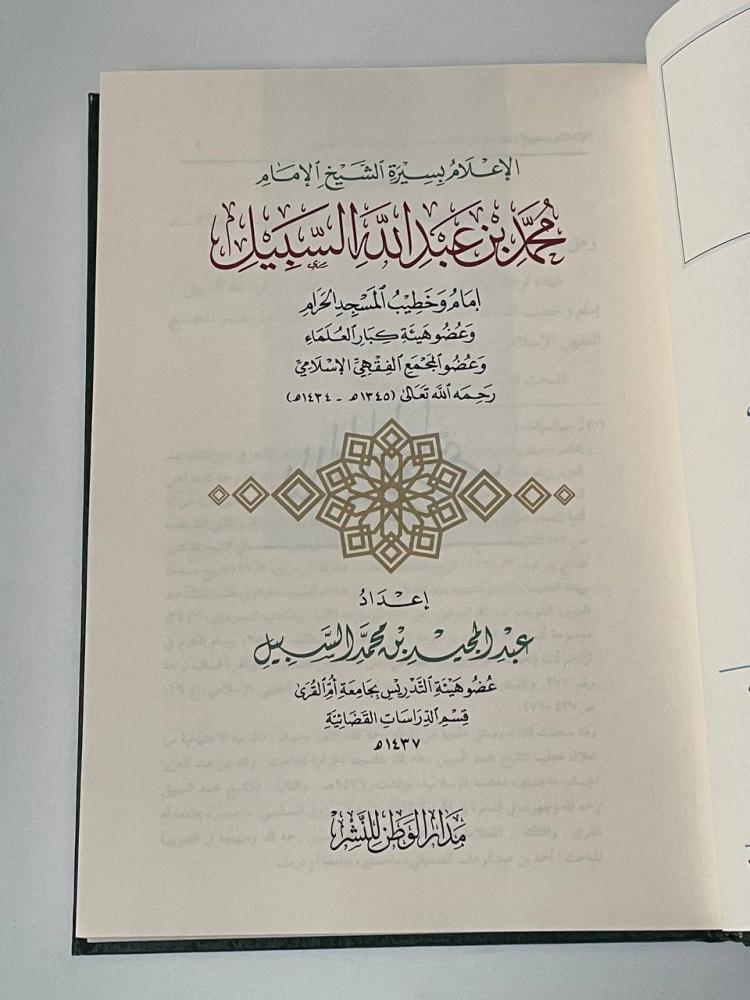 الإِعْلَامُ بِسِيرَةِ الشَّيْخِ الإِمَامِ
مُحَمَّدِ بْنِ عَبْدِ اللهِ السُّبَيِّلِ
إِمَامُ وَخَطِيْبُ المَسْجِدِ الحَرَامِ
وَعُضُو هَيْئَةِ كِبَارِ العُلَمَاءِ
وَعُضُو المَجْمَعِ الفِقْهِيِّ الإِسْلَامِيِّ
رَحِمَهُ اللهُ تَعَالَى (١٣٤٥هـ - ١٤٣٤هـ)
إِعْدَادُ
عَبْدِ المَجِيدِ بْنِ مُحَمَّدٍ السُّبَيِّلِ
عُضُو هَيْئَةِ التَّدْرِيْسِ بِجَامِعَةِ أُمِّ القُرَى
قِسْمِ الدِّرَاسَاتِ القَضَائِيَّةِ
١٤٣٧هـ
مَدَارُ الوَطَنِ لِلنَّشْرِ